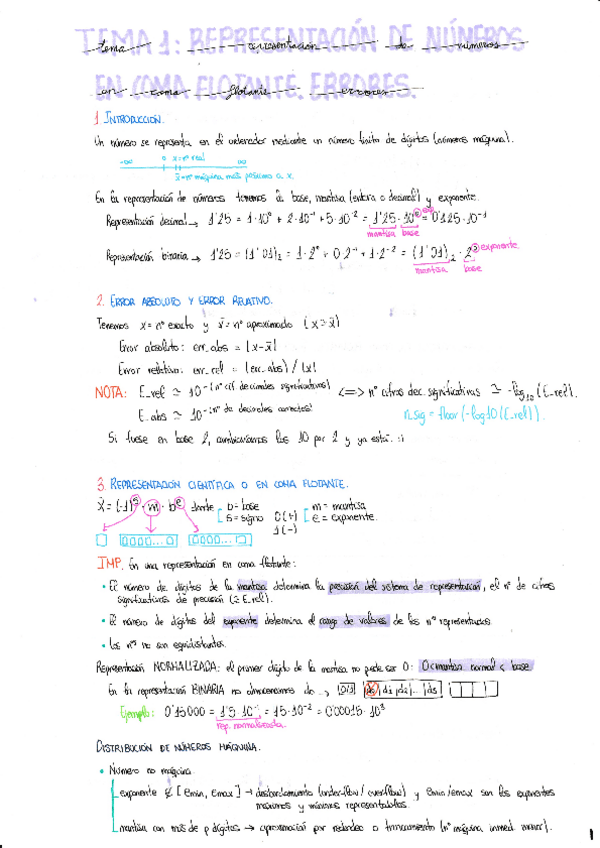 TEMA 1: REPRESENTACIÓN DE NÚMEROS
EN COMA FLOTANTE. ERRORES.
1. INTRODUCCIÓN.
Un número se representa en el ordenador mediante un número finito de dígitos (números máquina).
-∞ 0 x=nº real ∞
x̄=nº máquina más próximo a x.
En la representación de números tenemos la base, mantisa (entera o decimal) y exponente.
Representación decimal → 1'25 = 1·10⁰ + 2·10⁻¹ + 5·10⁻² = 1'25·10⁰ = 0'125·10⁻¹
exp mantisa base
Representación binaria → 1'25 = (1'01)₂ = 1·2⁰ + 0·2⁻¹ + 1·2⁻² = (1'01)₂ · 2⁰ exponente
mantisa base
2. ERROR ABSOLUTO Y ERROR RELATIVO.
Tenemos x = nº exacto y x̄ = nº aproximado (x ≃ x̄)
Error absoluto: err_abs = |x-x̄|
Error relativo: err_rel = (err_abs) / |x|
NOTA: E_rel ≃ 10^-(nº cif decimales significativas) <=> nº cifras dec. significativas ≃ -log₁₀(E_rel).
E_abs ≃ 10^-(nº de decimales correctos) n_sig = floor(-log10(E_rel)).
Si fuese en base 2, cambiaríamos los 10 por 2 y ya está :)
3. REPRESENTACIÓN CIENTÍFICA O EN COMA FLOTANTE.
x̄ = (-1)^s · m · b^e donde b = base m = mantisa
s = signo 0(+) e = exponente.
1(-)
0000...0 0000...0
IMP. En una representación en coma flotante:
• El número de dígitos de la mantisa determina la precisión del sistema de representación, el nº de cifras
significativas de precisión (≃ E_rel).
• El número de dígitos del exponente determina el rango de valores de los nº representados
• Los nºs no son equidistantes.
Representación NORMALIZADA: el primer dígito de la mantisa no puede ser 0: 0<mantisa normal < base
En la representación BINARIA no almacenamos do →
Ejemplo: 0'15000 = 1'5·10⁻¹ = 15·10⁻² = 0'00015·10³
rep. normalizada.
DISTRIBUCIÓN DE NÚMEROS MÁQUINA.
• Número no máquina
exponente ∉ [emin, emax] → desbordamiento (underflow / overflow) y emin/emax son los exponentes
máximos y mínimos representables.
mantisa con más de p dígitos → aproximación por redondeo o truncamiento (nº máquina inmed. menor).